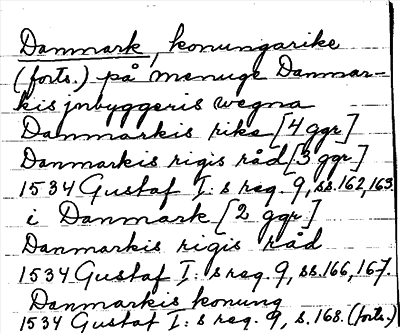 Danmark, konungarike
(forts.) på menuge Danmar-
kis jnbyggeris wegna
Danmarkis rike [4 ggr]
Danmarkis rigis råd [3 ggr]
1534 Gustaf I:s reg. 9, ss. 162, 163.
i Danmark [2 ggr]
Danmarkis rigis råd
1534 Gustaf I:s reg. 9, ss. 166, 167.
Danmarkis konung
1534 Gustaf I:s reg. 9, s. 168. (forts.)